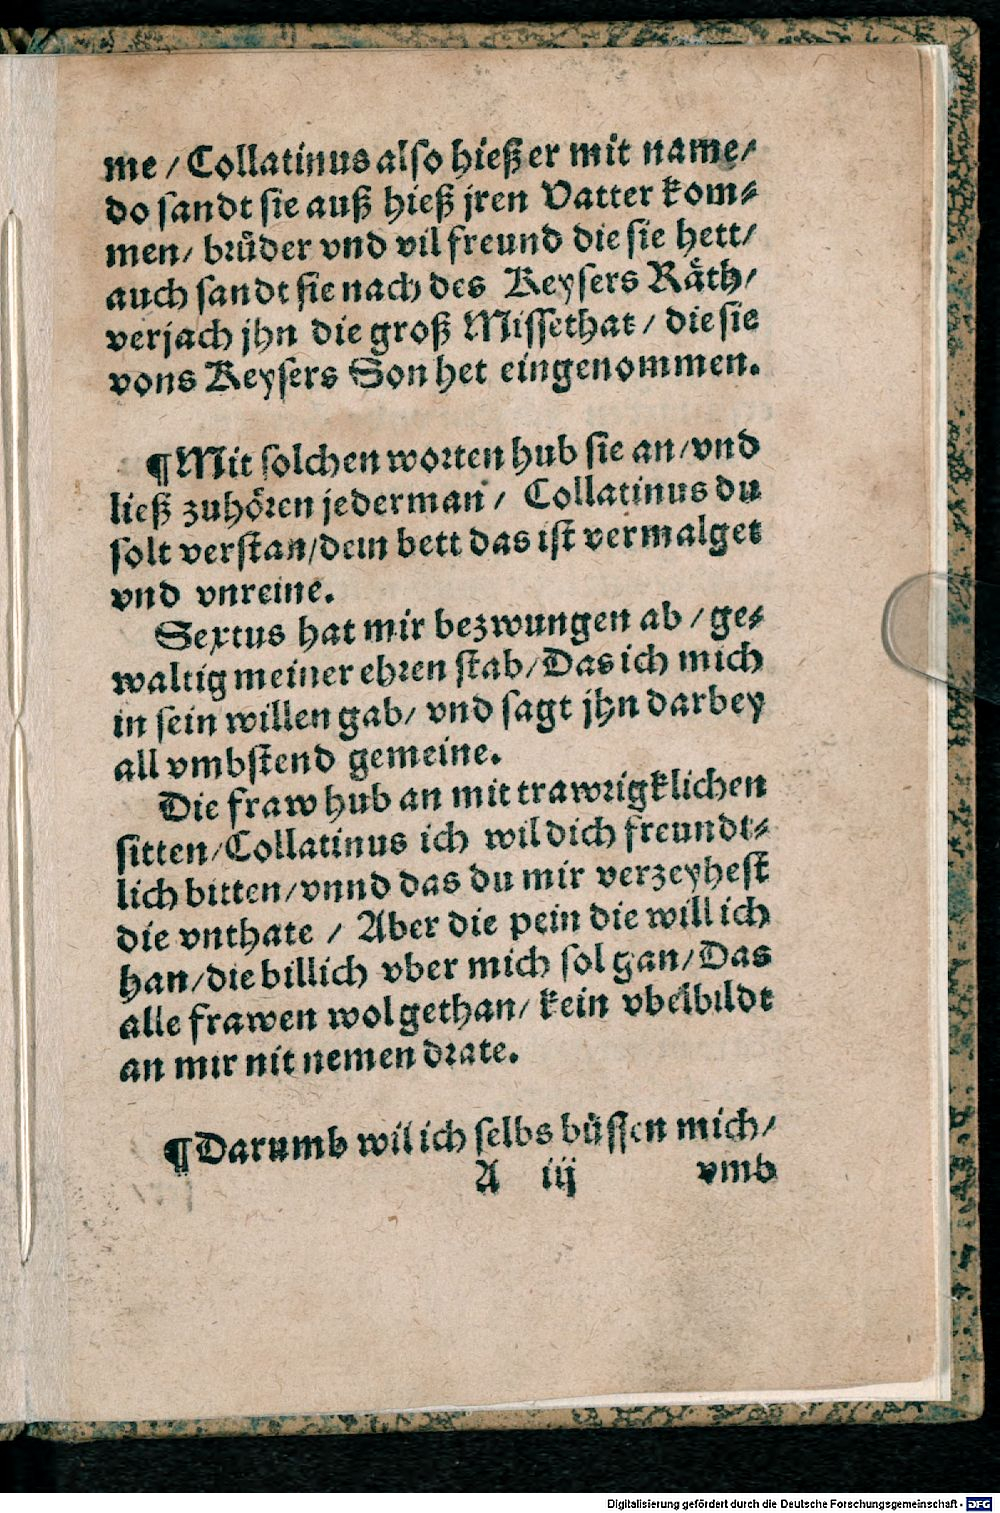 me / Collatinus also hieß er mit name/
do sandt sie auß hieß jren Vatter kom⸗
men/ bruͤder vnd vil freund die sie hett/
auch sandt sie nach des Keysers Raͤth/
verjach jhn die groß Missethat / die sie
vons Keysers Son het eingenommen.
¶ Mit solchen worten hub sie an/vnd
ließ zuhoͤren jederman / Collatinus du
solt verstan/dein bett das ist vermalget
vnd vnreine.
Sextus hat mir bezwungen ab / ge⸗
waltig meiner ehren stab/Das ich mich
in sein willen gab/ vnd sagt jhn darbey
all vmbstend gemeine.
Die fraw hub an mit trawrigklichen
sitten/Collatinus ich wil dich freundt⸗
lich bitten/vnnd das du mir verzeyhest
die vnthate / Aber die pein die will ich
han/die billich vber mich sol gan/Das
alle frawen wol gethan/ kein vbelbildt
an mir nit nemen drate.
¶ Darumb wil ich selbs buͤssen mich/
A iij vmb
Digitalisierung gefördert durch die Deutsche Forschungsgemeinschaft - DFG